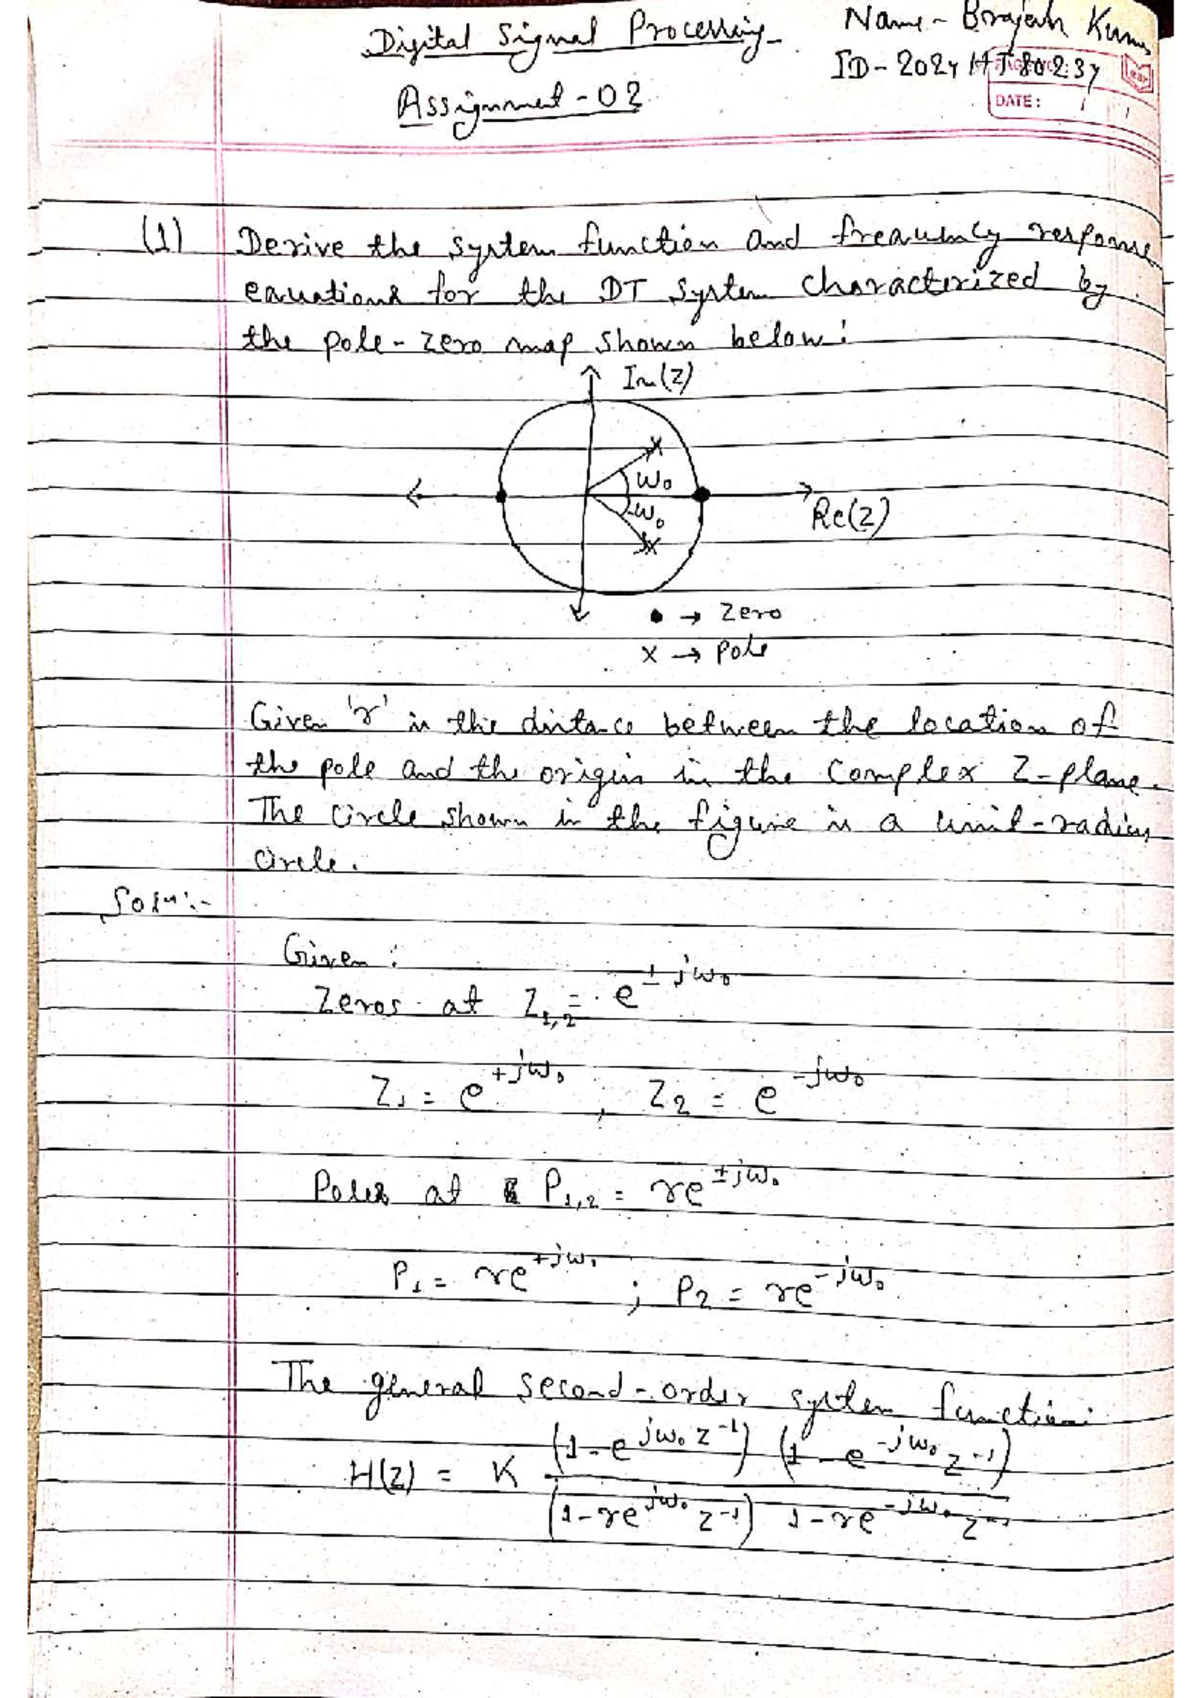 Digital Signal Processing
Name - Brajesh Kumar
ID - 2024HT80237
Assignment - 02
DATE:
(1) Derive the system function and frequency response
equations for the DT system characterized by
the pole-zero map shown below:
Im(z)
ω₀
-ω₀
Re(z)
• → Zero
x → Pole
Given 'r' is the distance between the location of
the pole and the origin in the complex Z-plane.
The circle shown in the figure is a unit-radius
circle.
Soln:-
Given:
Zeros at Z₁,₂ = e^(±jω₀)
Z₁ = e^(+jω₀) , Z₂ = e^(-jω₀)
Poles at P₁,₂ = re^(±jω₀)
P₁ = re^(+jω₀) ; P₂ = re^(-jω₀)
The general second-order system function:
H(z) = K (1-e^(jω₀) z⁻¹) (1-e^(-jω₀) z⁻¹)
(1-re^(jω₀) z⁻¹) 1-re^(-jω₀) z⁻¹